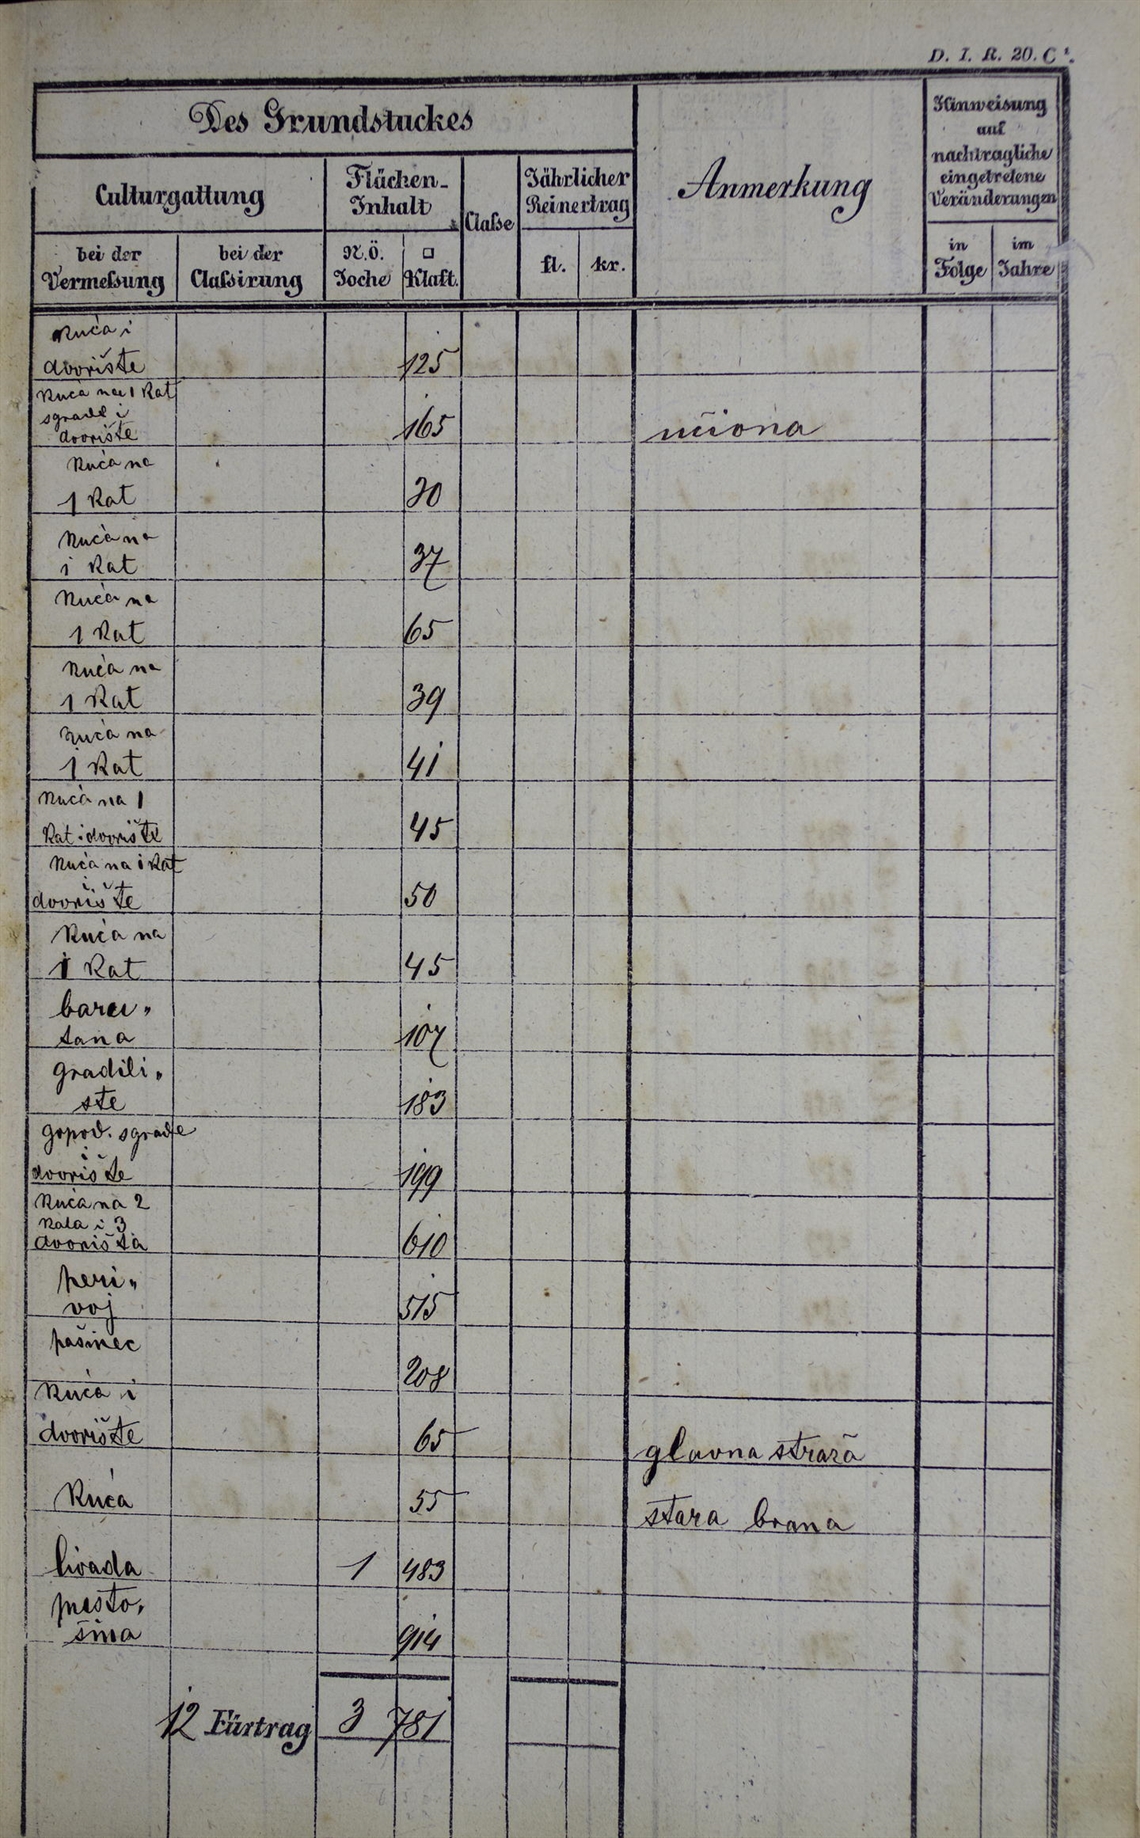 D. I. R. 20. C¹.
Des Grundstuckes
Culturgattung
Flächen-
Inhalt
Claße
Jährlicher
Reinertrag
Anmerkung
Hinweisung
auf
nachtragliche
eingetretene
Veränderungen
bei der
Vermeßung
bei der
Claßirung
N.Ö.
Joche
□
Klaft.
fl.
kr.
in
Folge
im
Jahre
Kuća i
dvorište 125
Kuća na 1 Kat
sgrade i
dvorište 165 učiona
Kuća na
1 Kat 30
Kuća na
1 Kat 37
Kuća na
1 Kat 65
Kuća na
1 Kat 39
Kuća na
1 Kat 41
Kuća na 1
Kat i dvorište 45
Kuća na 1 Kat
i
dvorište 50
Kuća na
1 Kat 45
baru„
tana 107
gradili„
šte 183
gopod. sgrade
i
dvorište 199
Kuća na 2
Kata i 3
dvorišta 610
peri„
voj 515
pašinec
208
Kuća i
dvorište 65 glavna straža
Kuća 55 stara brana
livada 1 483
pusto„
šina 914
12 Fürtrag 3 781